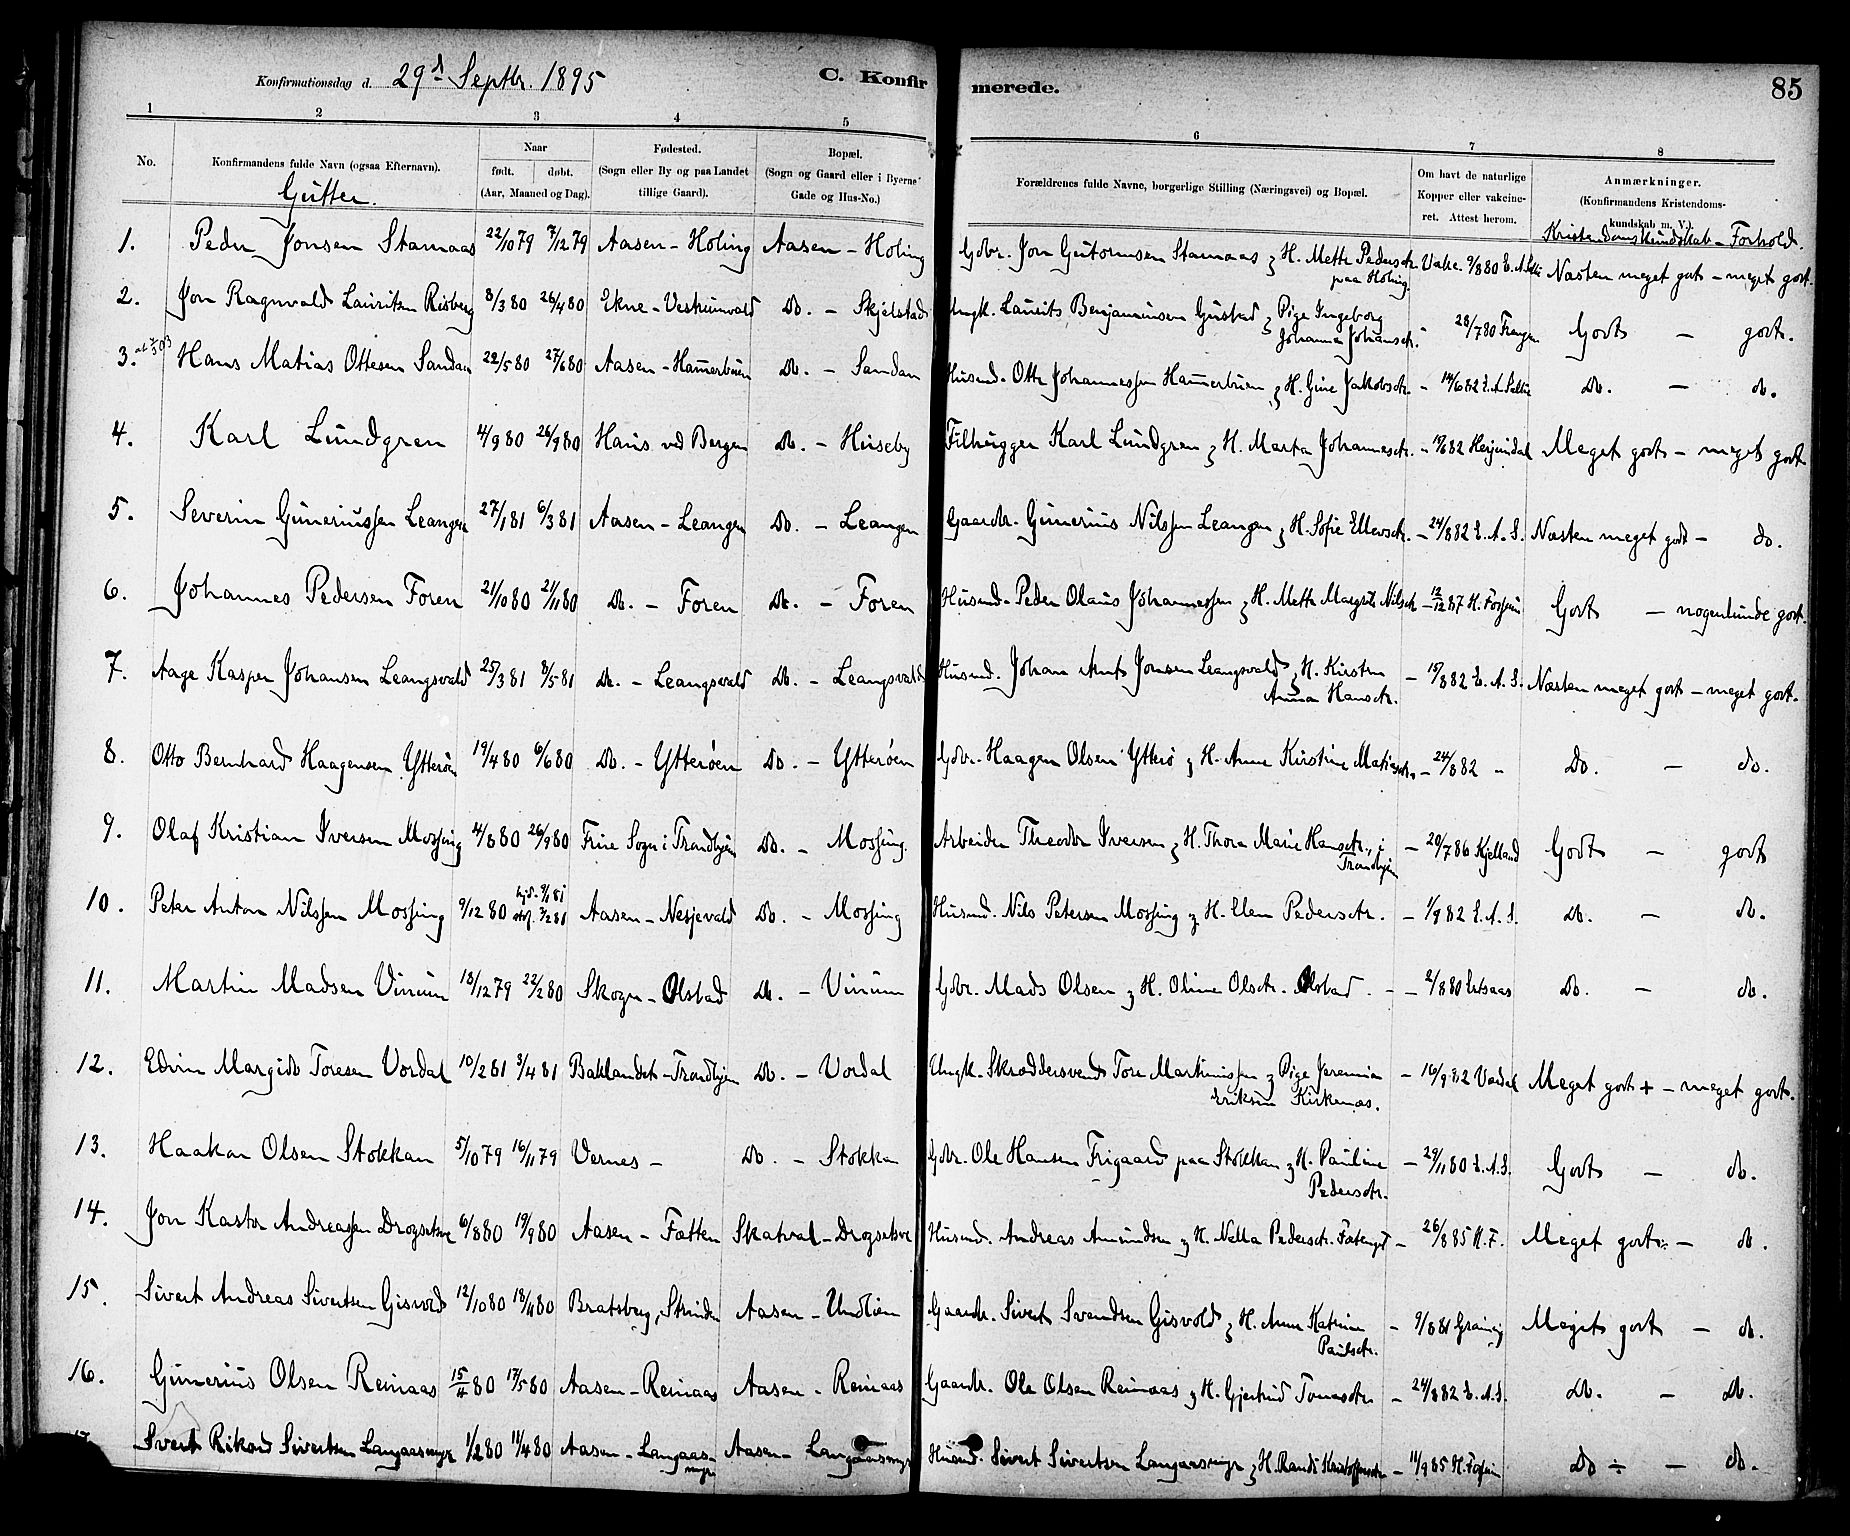 Konfirmationsdag d. 29d Septbr. 1895 C. Konfirmerede. 85
1 2 3 4 5 6 7 8
No. Konfirmandens fulde Navn (ogsaa Efternavn). Naar født. døbt. (Aar, Maaned og Dag). Fødested. (Sogn eller By og paa Landet tillige Gaard). Bopæl. (Sogn og Gaard eller i Byerne Gade og Hus-No.) Forældrenes fulde Navne, borgerlige Stilling (Næringsvei) og Bopæl. Om havt de naturlige Kopper eller vakcineret. Attest herom. Anmærkninger. (Konfirmandens Kristendomskundskab m. V.)
Gutter. Kristendomskundskab - Forhold.
1. Peder Jonsen Stamaas 22/10 79 7/12 79 Aasen - Holing Aasen - Holing Gdbr. Jon Gutormsen Stamaas & H. Mette Pedersdtr. Vakc. 9/8 80 Næsten meget godt - meget godt.
paa Holing.
2. Jon Ragnvald Lauritsen Risberg 8/3 80 26/4 80 Ekne - Vestrumvald Do. - Skjelstad Ungk. Laurits Benjaminsen Gustad & Pige Ingeborg - 28/7 80 Godt - godt.
Johanna Johansdtr.
3. Hans Matias Ottesen Sandan 22/5 80 27/6 80 Aasen - Hammerbuen Do. - Sandan Husmd. Otte Johannessen Hammerbuen & H. Gine Jakobsdtr. - 14/6 82 Do. - do.
4. Karl Lundgren 4/9 80 26/9 80 Haus ved Bergen Do. - Huseby Filhugger Karl Lundgren & H. Marta Johannesdtr. - Meget godt - meget godt
5. Severin Guneriussen Leangen 27/1 81 6/3 81 Aasen - Leangen Do. - Leangen Gaardbr. Gunerius Nilssen Leangen & H. Sofie Ellevsdtr. - 24/8 82 E. A. S. Næsten meget godt - do.
6. Johannes Pedersen Foren 21/10 80 21/11 80 Do. - Foren Do. - Foren Husmd. Peder Olaus Johannessen & H. Mette Margrete Nilsdtr. - 12/12 87 Godt - nogenlunde godt.
7. Aage Kasper Johansen Leangsvald 25/3 81 8/5 81 Do. - Leangsvald Do. - Leangsvald Husmd. Johan Arnt Jonsen Leangsvald & H. Kirsten - 15/8 82 E. A. S. Næsten meget godt - meget godt.
Anna Hansdtr.
8. Otto Bernhard Haagensen Ytterøen 19/4 80 6/6 80 Do. - Ytterøen Do. - Ytterøen Gdbr. Haagen Olsen Ytterø & H. Anne Kirstine Matiasdtr. - 24/8 82 " Do. - do.
9. Olaf Kristian Iversen Mossing 4/8 80 26/9 80 Frue Sogn i Trondhjem Do. - Mossing. Arbeider Theodor Iversen & H. Thora Marie Hansdtr., i - 20/7 86 Kjelland Godt - godt
Trondhjem
10. Peter Anton Nilssen Mossing 9/12 80 hjd. 9/1 81 Aasen - Nesjevald Do. - Mossing Husmd. Nils Petersen Mossing & H. Elen Pedersdtr. - 1/9 82 E. A. S. Do. - do.
stf. 3/2 81
11. Martin Madsen Vinum 18/12 79 22/2 80 Skogn - Olstad Do. - Vinum Gdbr. Mads Olsen & H. Oline Olsdtr. Olstad. - - 2/8 80 Do. - do.
12. Edvin Margido Toresen Vordal 10/2 81 3/4 81 Baklandet - Trondhjem Do. - Vordal Ungk. Skræddersvend Tore Martinussen & Pige Jeremia - 16/9 82 Meget godt + - meget godt.
Eriksen Kirkenæs.
13. Haakon Olsen Stokkan 5/10 79 16/11 79 Vernes - Do. - Stokkan Gdbr. Ole Hansen Frigaard paa Stokkan & H. Pauline - 29/11 80 E. A. S. Godt - do.
Pedersdtr.
14. Jon Kastor Andreassen Drogsetsve 6/8 80 19/9 80 Aasen - Fætten Skatval - Drogsetsve Husmd. Andreas Amundsen & H. Nella Pedersdtr. - 26/8 85 H. F. Meget godt - do.
15. Sivert Andreas Sivertsen Gisvold 12/10 80 18/4 80 Bratsberg, Strinden Aasen - Undlien Gaardbr. Sivert Svendsen Gisvold & H. Anne Katrine - 9/8 81 Meget godt - do.
Paulsdtr.
16. Gunerius Olsen Reinaas 15/4 80 17/5 80 Aasen - Reinaas Aasen - Reinaas Gaardbr. Ole Olsen Reinaas & H. Gjertrud Tomasdtr - 24/8 82 E. A. S. Do. - do.
17. Sivert Rikard Sivertsen Langaasmyr 1/2 80 11/4 80 Aasen - Langaasmyr Aasen - Langaasmyr Husmd. Sivert Sivertsen Langaasmyr & H. Randi Kristoffersdtr - 11/9 85 Do ÷ - do.